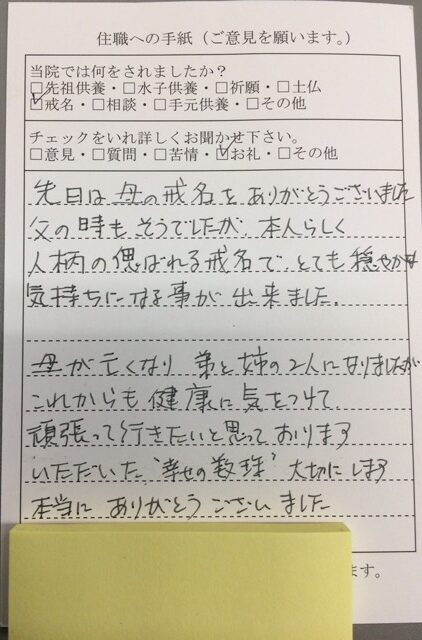 住職への手紙（ご意見を願います。）
当院では何をされましたか？
□先祖供養・□水子供養・□祈願・□土仏
☑戒名・□相談・□手元供養・□その他
チェックをいれ詳しくお聞かせ下さい。
□意見・□質問・□苦情・☑お礼・□その他
先日は母の戒名をありがとうございました
父の時もそうでしたが、本人らしく
人柄の偲ばれる戒名で、とても穏やかな
気持ちになる事が出来ました。
母が亡くなり弟と姉の2人になりましたが
これからも健康に気をつけて、
頑張って行きたいと思っております
いただいた“幸せの数珠”大切にします
本当にありがとうございました
ます。